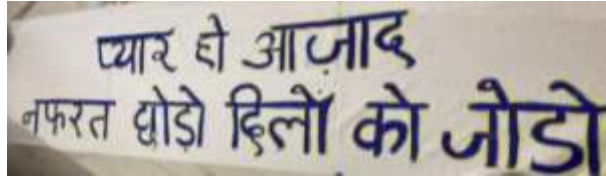 प्यार हो आज़ाद
नफरत छोड़ो दिलों को जोडो